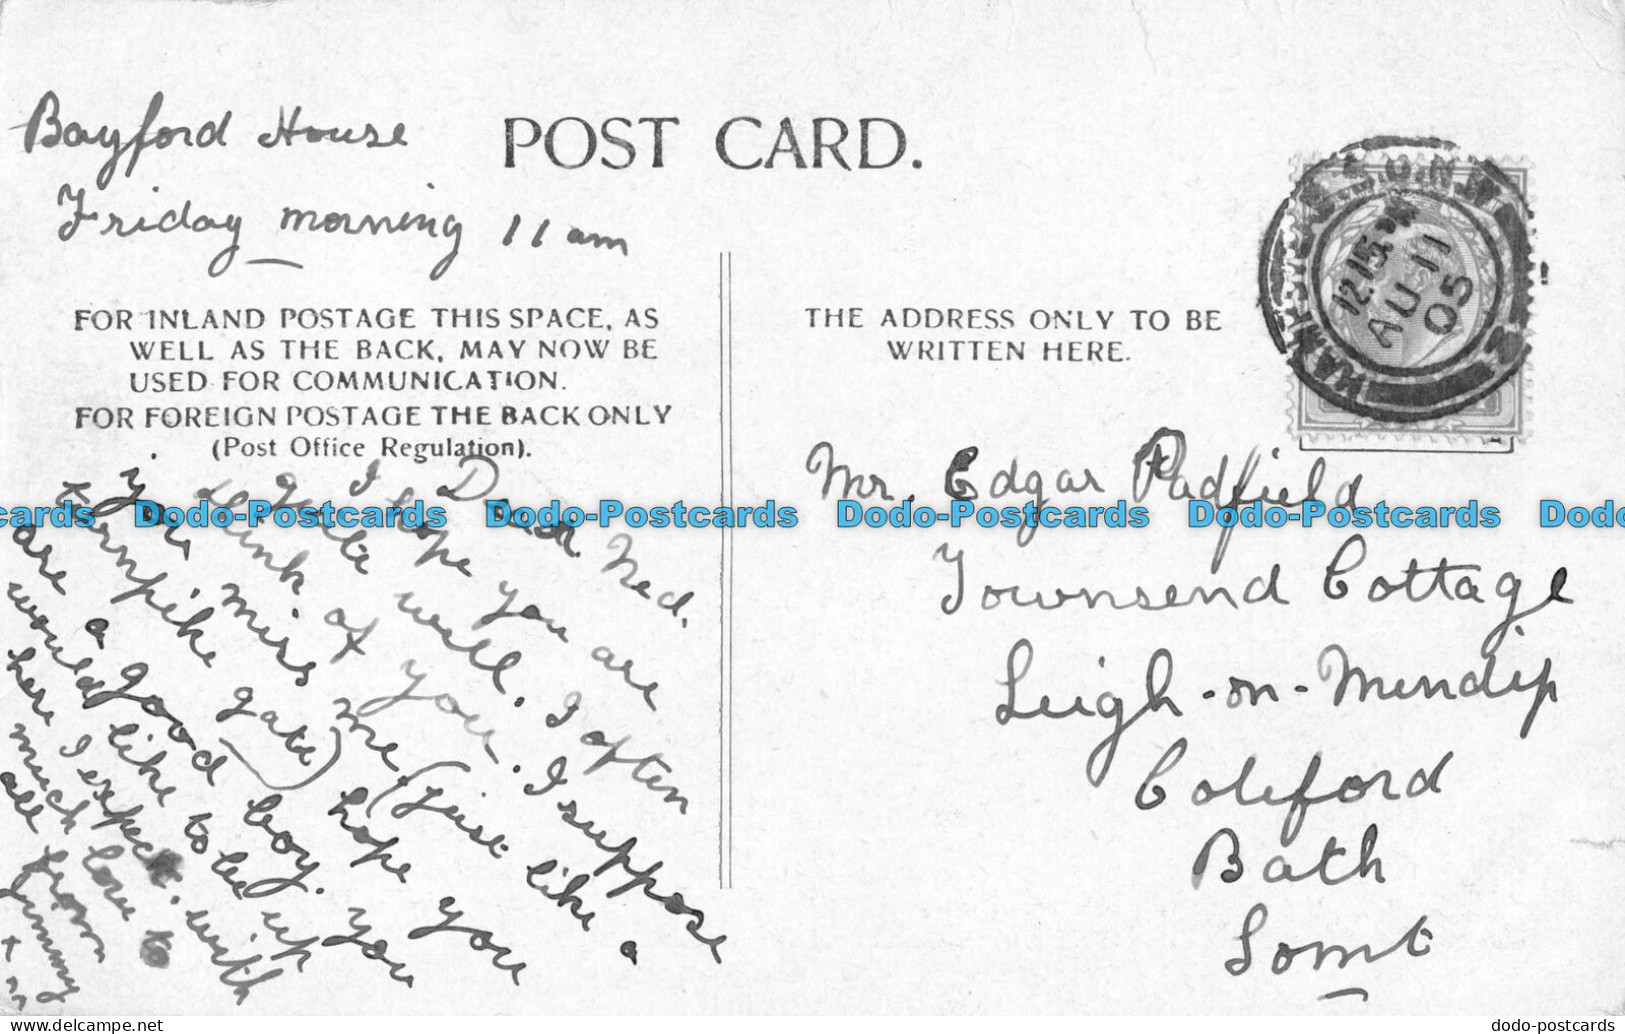 Bayford House
Friday morning 11 am
POST CARD.
FOR INLAND POSTAGE THIS SPACE, AS
WELL AS THE BACK, MAY NOW BE
USED FOR COMMUNICATION.
FOR FOREIGN POSTAGE THE BACK ONLY
(Post Office Regulation).
Dear Ned.
I hope you are
quite well. I often
think of you. I suppose
you miss me. (just like a
turnpike gate) hope you
are a good boy. you
would like to be up
here I expect. with
much love to
all from
Jimmy
THE ADDRESS ONLY TO BE
WRITTEN HERE.
HAMPSTEAD S.O.N.W
12.15 PM
AU 11
05
Mr. Edgar Padfield
Townsend Cottage
Leigh-on-Mendip
Coleford
Bath
Somt
Dodo-Postcards Dodo-Postcards Dodo-Postcards Dodo-Postcards
dodo-postcards
www.delcampe.net